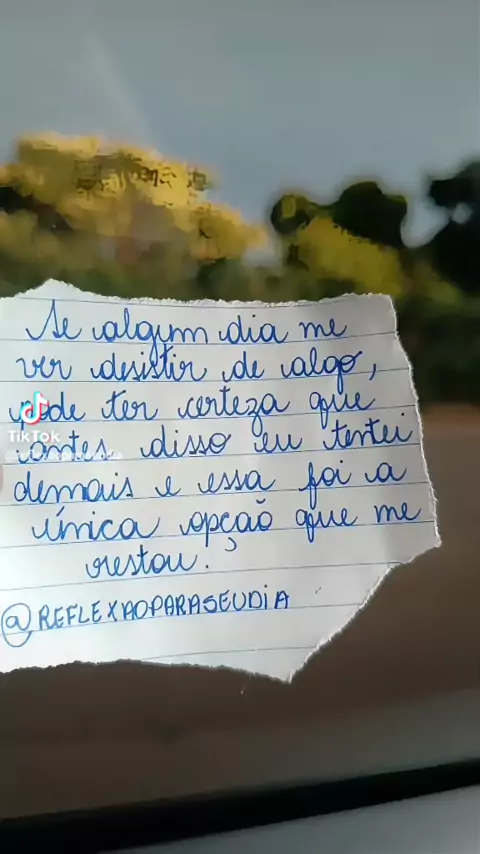 Se algum dia me
ver desistir de algo,
pode ter certeza que
antes disso eu tentei
demais e essa foi a
única opção que me
restou.
@REFLEXAOPARASEUDIA
TikTok